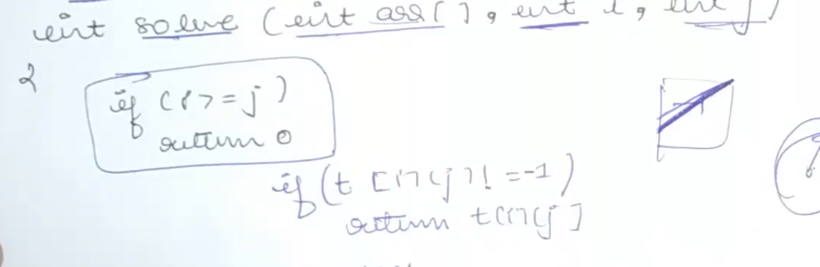 int solve (int arr[], int i, int j)
{
if (i >= j)
return 0
if (t[i][j] != -1)
return t[i][j]